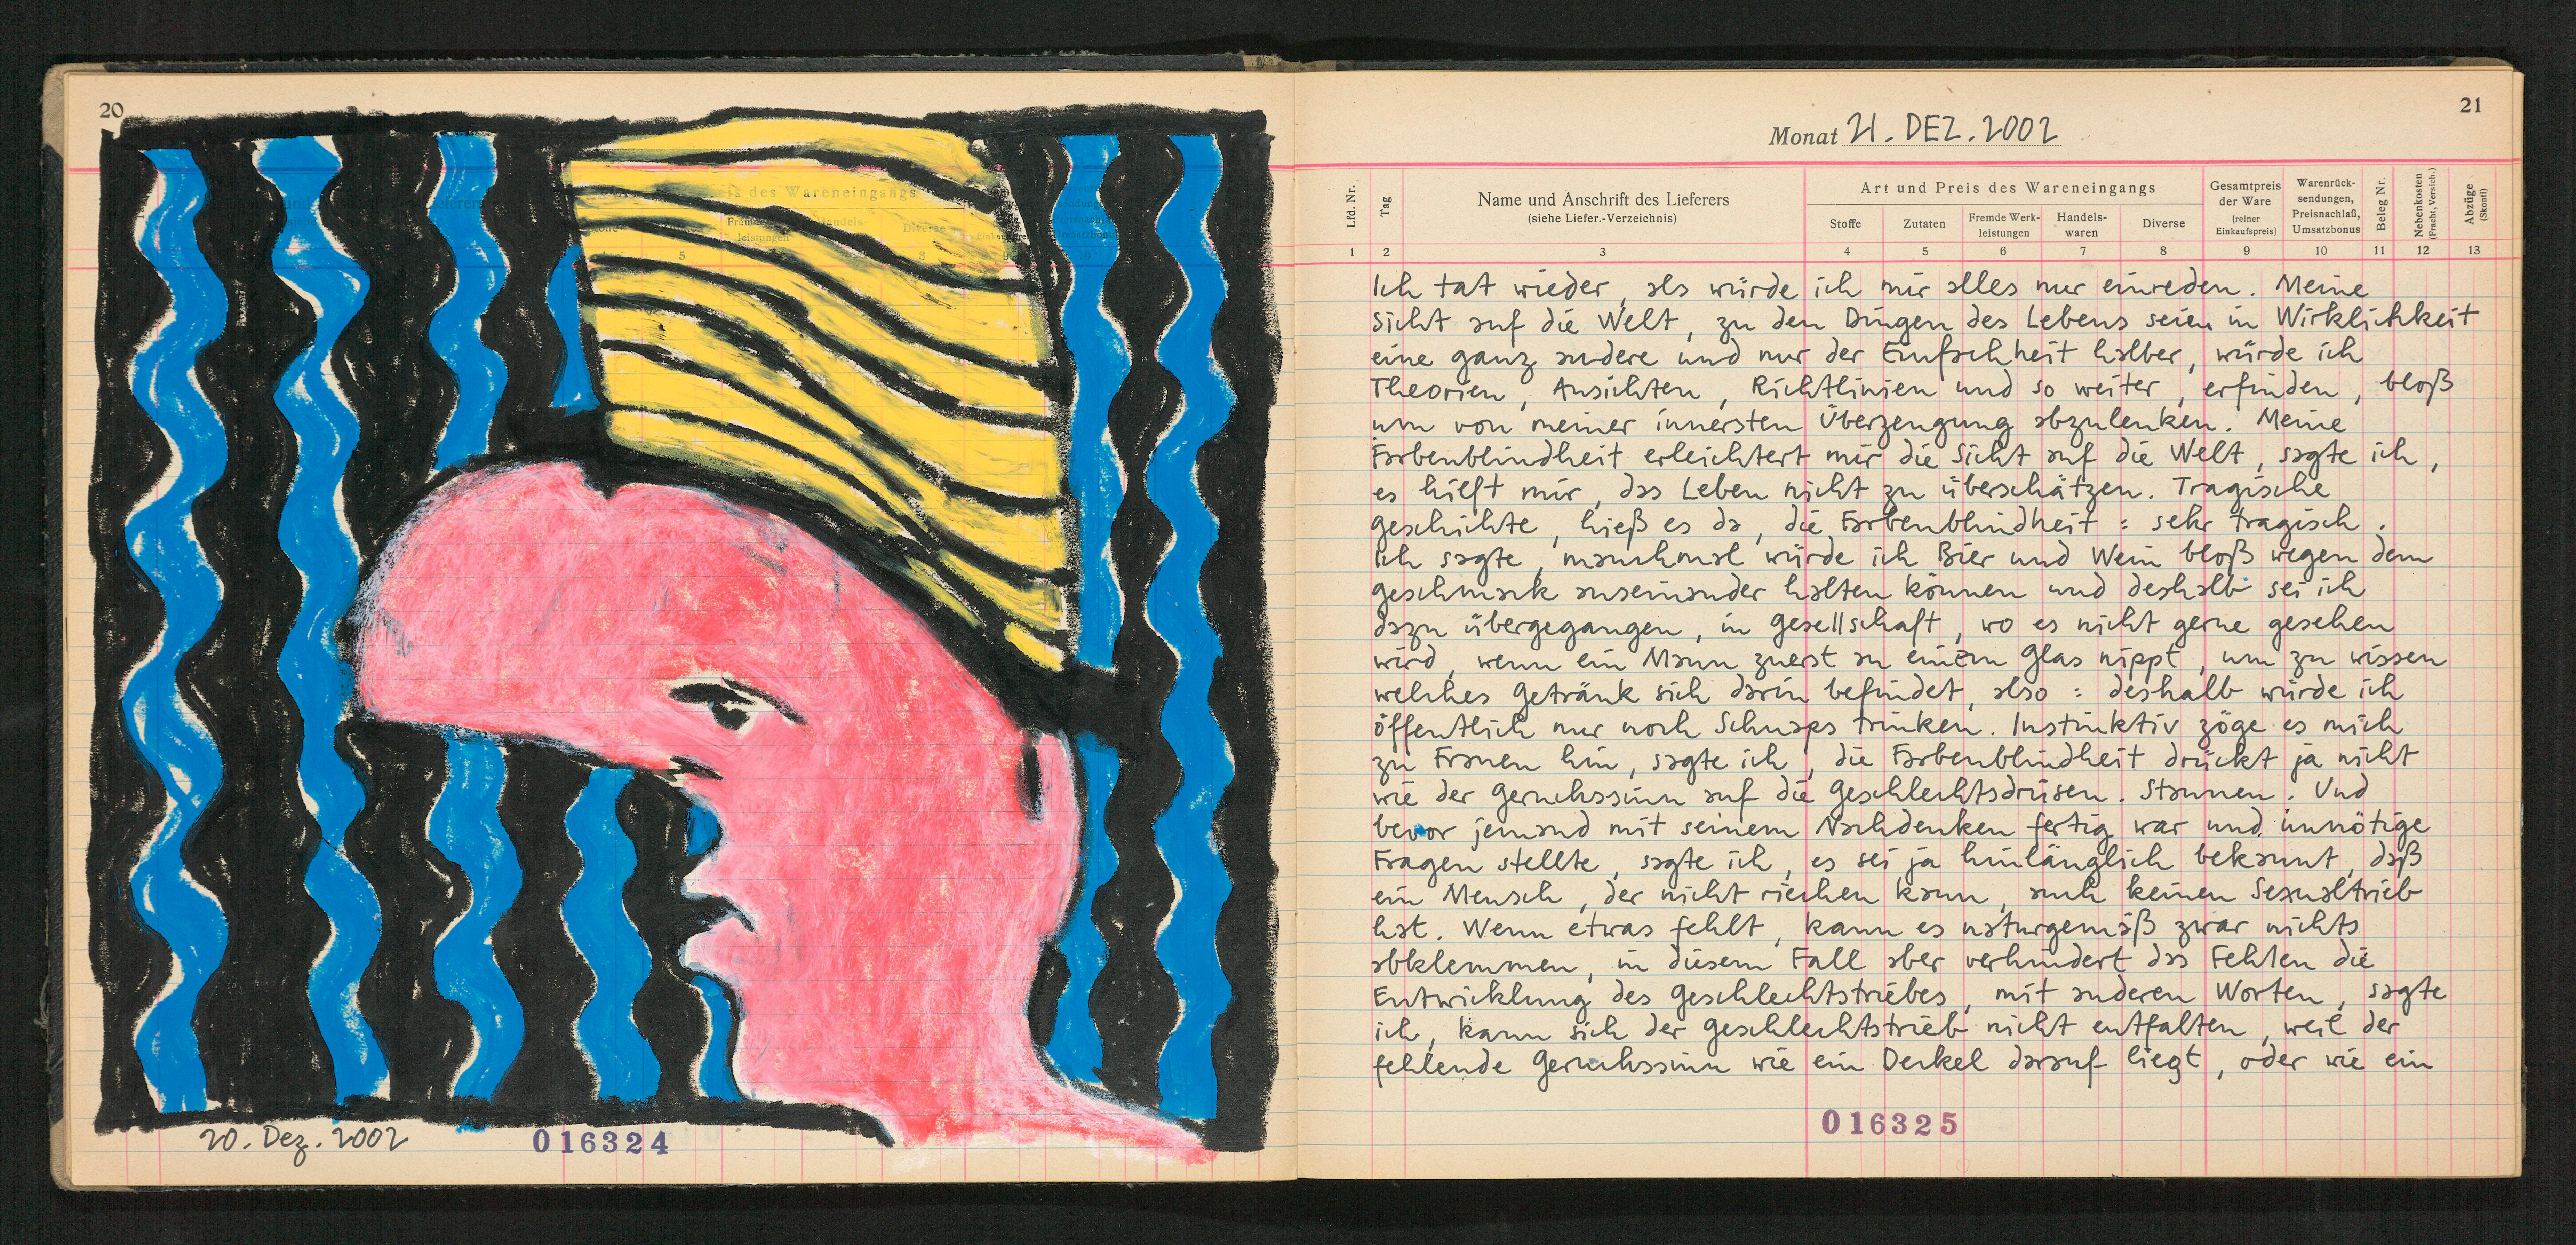 20
eis des Wareneingangs
Fremde
leistungen
Handels-
Diverse
5
20. Dez. 2002
016324
21
Monat 21. DEZ. 2002
Lfd. Nr.
Tag
Name und Anschrift des Lieferers
(siehe Liefer.-Verzeichnis)
Art und Preis des Wareneingangs
Stoffe
Zutaten
Fremde Werk-
leistungen
Handels-
waren
Diverse
Gesamtpreis
der Ware
(reiner
Einkaufspreis)
Warenrück-
sendungen,
Preisnachlaß,
Umsatzbonus
Beleg Nr.
Nebenkosten
(Fracht, Versich.)
Abzüge
(Skonti)
1 2 3 4 5 6 7 8 9 10 11 12 13
Ich tat wieder, als würde ich mir alles nur einreden. Meine
Sicht auf die Welt, zu den Dingen des Lebens seien in Wirklichkeit
eine ganz andere und nur der Einfachheit halber, würde ich
Theorien, Ansichten, Richtlinien und so weiter, erfinden, bloß
um von meiner innersten Überzeugung abzulenken. Meine
Farbenblindheit erleichtert mir die Sicht auf die Welt, sagte ich,
es hilft mir, das Leben nicht zu überschätzen. Tragische
Geschichte, hieß es da, die Farbenblindheit: sehr tragisch.
Ich sagte, manchmal würde ich Bier und Wein bloß wegen dem
Geschmack auseinander halten können und deshalb sei ich
dazu übergegangen, in Gesellschaft, wo es nicht gerne gesehen
wird, wenn ein Mann zuerst an einem Glas nippt, um zu wissen
welches Getränk sich darin befindet, also: deshalb würde ich
öffentlich nur noch Schnaps trinken. Instinktiv zöge es mich
zu Frauen hin, sagte ich, die Farbenblindheit drückt ja nicht
wie der Geruchssinn auf die Geschlechtsdrüsen. Staunen. Und
bevor jemand mit seinem Nachdenken fertig war und unnötige
Fragen stellte, sagte ich, es sei ja hinlänglich bekannt, daß
ein Mensch, der nicht riechen kann, auch keinen Sexualtrieb
hat. Wenn etwas fehlt, kann es naturgemäß zwar nichts
abklemmen, in diesem Fall aber verhindert das Fehlen die
Entwicklung des Geschlechtstriebes, mit anderen Worten, sagte
ich, kann sich der Geschlechtstrieb nicht entfalten, weil der
fehlende Geruchssinn wie ein Deckel darauf liegt, oder wie ein
016325